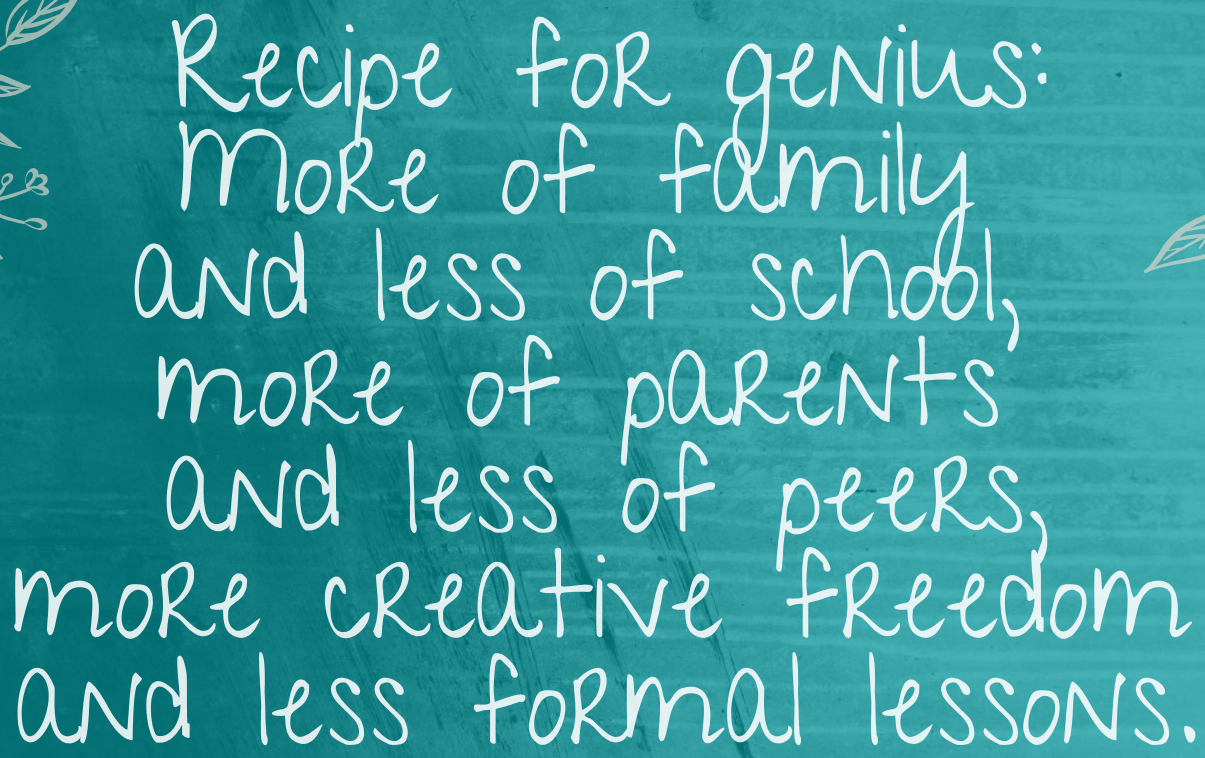 Recipe for genius:
More of family
and less of school,
more of parents
and less of peers,
more creative freedom
and less formal lessons.